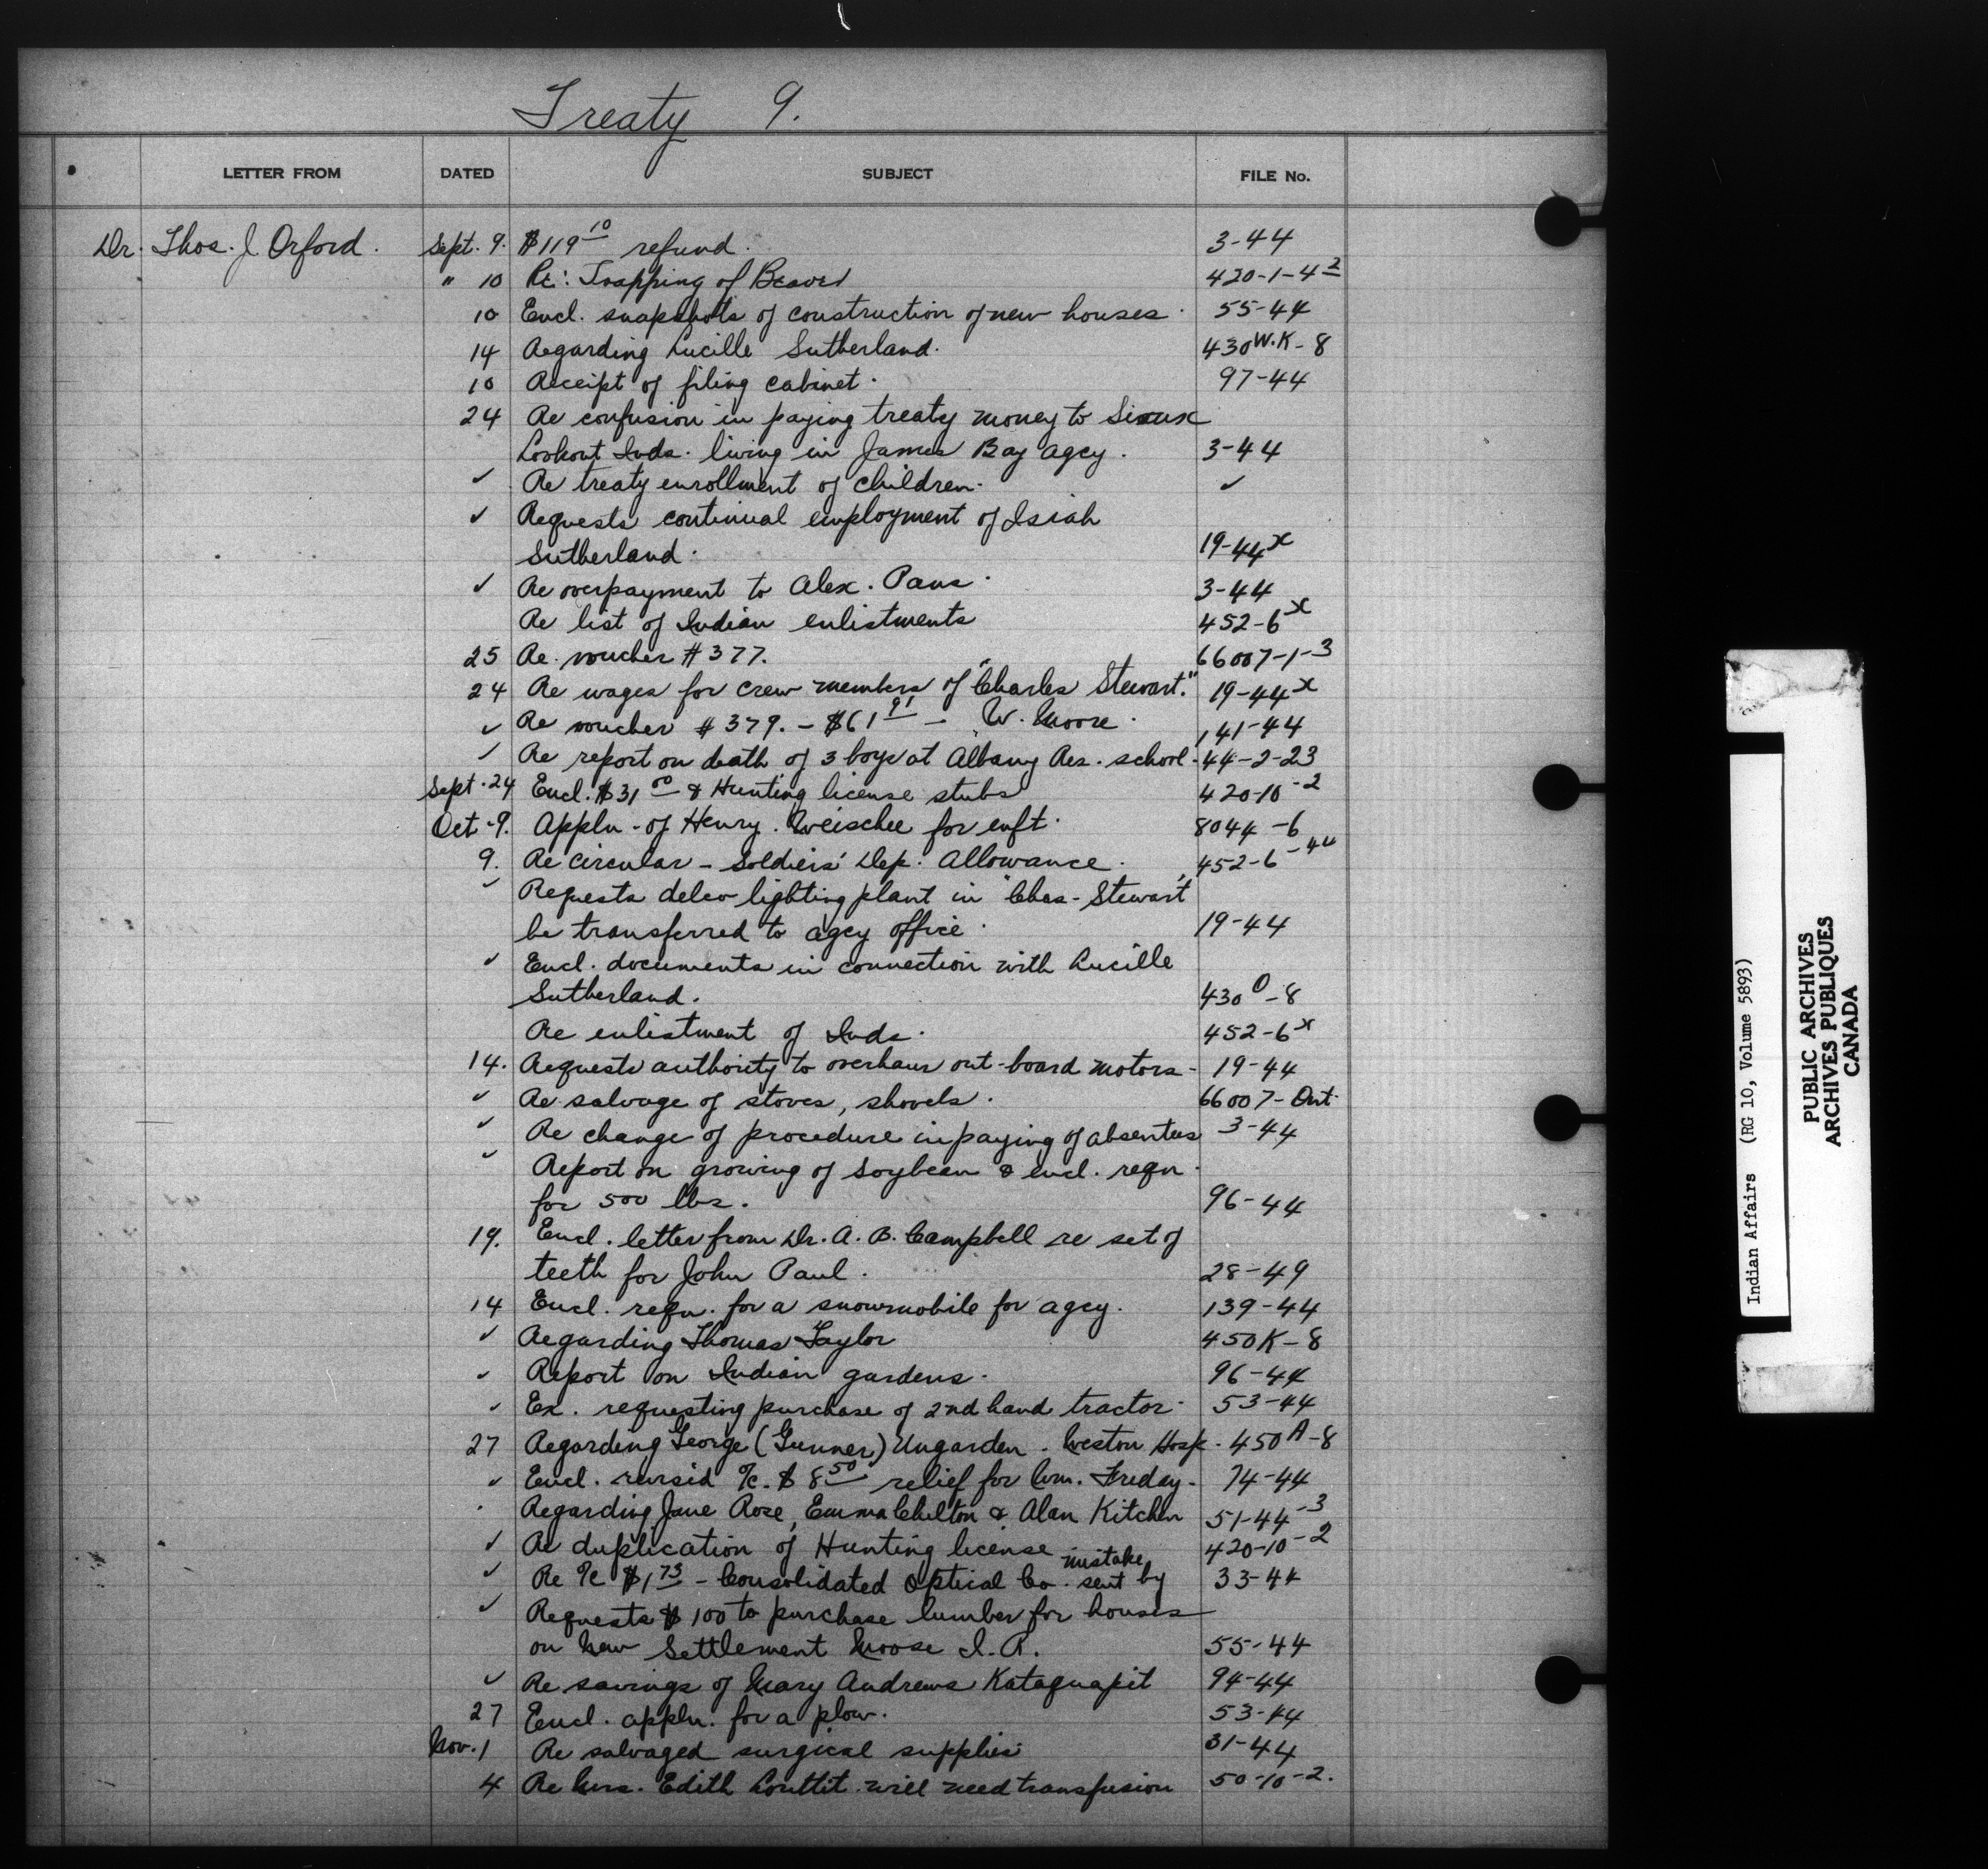 Treaty 9.
LETTER FROM DATED SUBJECT FILE No.
Dr. Thos. J. Orford. Sept. 9. $119 10 refund. 3-44
" 10 Re: Trapping of Beaver 420-1-4 2
10 Encl. snapshots of construction of new houses. 55-44
14 Regarding Lucille Sutherland. 430 W.K-8
10 Receipt of filing cabinet. 97-44
24 Re confusion in paying treaty money to Sioux
Lookout Inds. living in James Bay agcy. 3-44
✓ Re treaty enrollment of children. ✓
✓ Requests continual employment of Isiah
Sutherland. 19-44 x
✓ Re overpayment to Alex. Paus. 3-44
Re list of Indian enlistments 452-6 x
25 Re voucher # 377. 66007-1-3
24 Re wages for crew members of "Charles Stewart." 19-44 x
✓ Re voucher # 379. - $61 91 - W. Moore. 141-44
✓ Re report on death of 3 boys at Albany Res. school. 44-2-23
Sept. 24 Encl. $31 00 & Hunting license stubs 420-10-2
Oct-9. Appln. of Henry for enft. 8044-6
9. Re circular - Soldiers' Dep. Allowance. 452-6-44
✓ Requests delco lighting plant in "Chas. Stewart"
be transferred to agcy office. 19-44
✓ Encl. documents in connection with Lucille
Sutherland. 430 O-8
Re enlistment of Inds. 452-6 x
14. Requests authority to overhaur out-board motors- 19-44
✓ Re salvage of stoves, shovels. 66007-Ont.
✓ Re change of procedure in paying of absentees 3-44
✓ Report on growing of soybean & encl. reqn.
for 500 lbs. 96-44
19. Encl. letter from Dr. A. B. Campbell re set of
teeth for John Paul. 28-49
14 Encl. reqn. for a snowmobile for agcy. 139-44
✓ Regarding Thomas Taylor 450K-8
✓ Report on Indian gardens. 96-44
✓ Ex. requesting purchase of 2nd hand tractor. 53-44
27 Regarding George (Gunner) Ungarden. Weston Hosp. 450 A-8
✓ Encl. a/c. $8 50 relief for Wm. Friday- 74-44
Regarding Jane Rose, Emma Chilton & Alan Kitchen 51-44-3
✓ Re duplication of Hunting license 420-10-2
✓ Re a/c $1 73 - Consolidated Optical Co. sent by mistake 33-44
✓ Requests $100 to purchase lumber for houses
on New Settlement Moose I.R. 55-44
✓ Re savings of Mary Andrews Kataquapit 94-44
27 Encl. appln. for a plow. 53-44
Nov. 1 Re salvaged surgical supplies 31-44
4 Re Mrs. Edith Louttit will need transfusion 50-10-2.
Indian Affairs (RG 10, Volume 5893)
PUBLIC ARCHIVES
ARCHIVES PUBLIQUES
CANADA